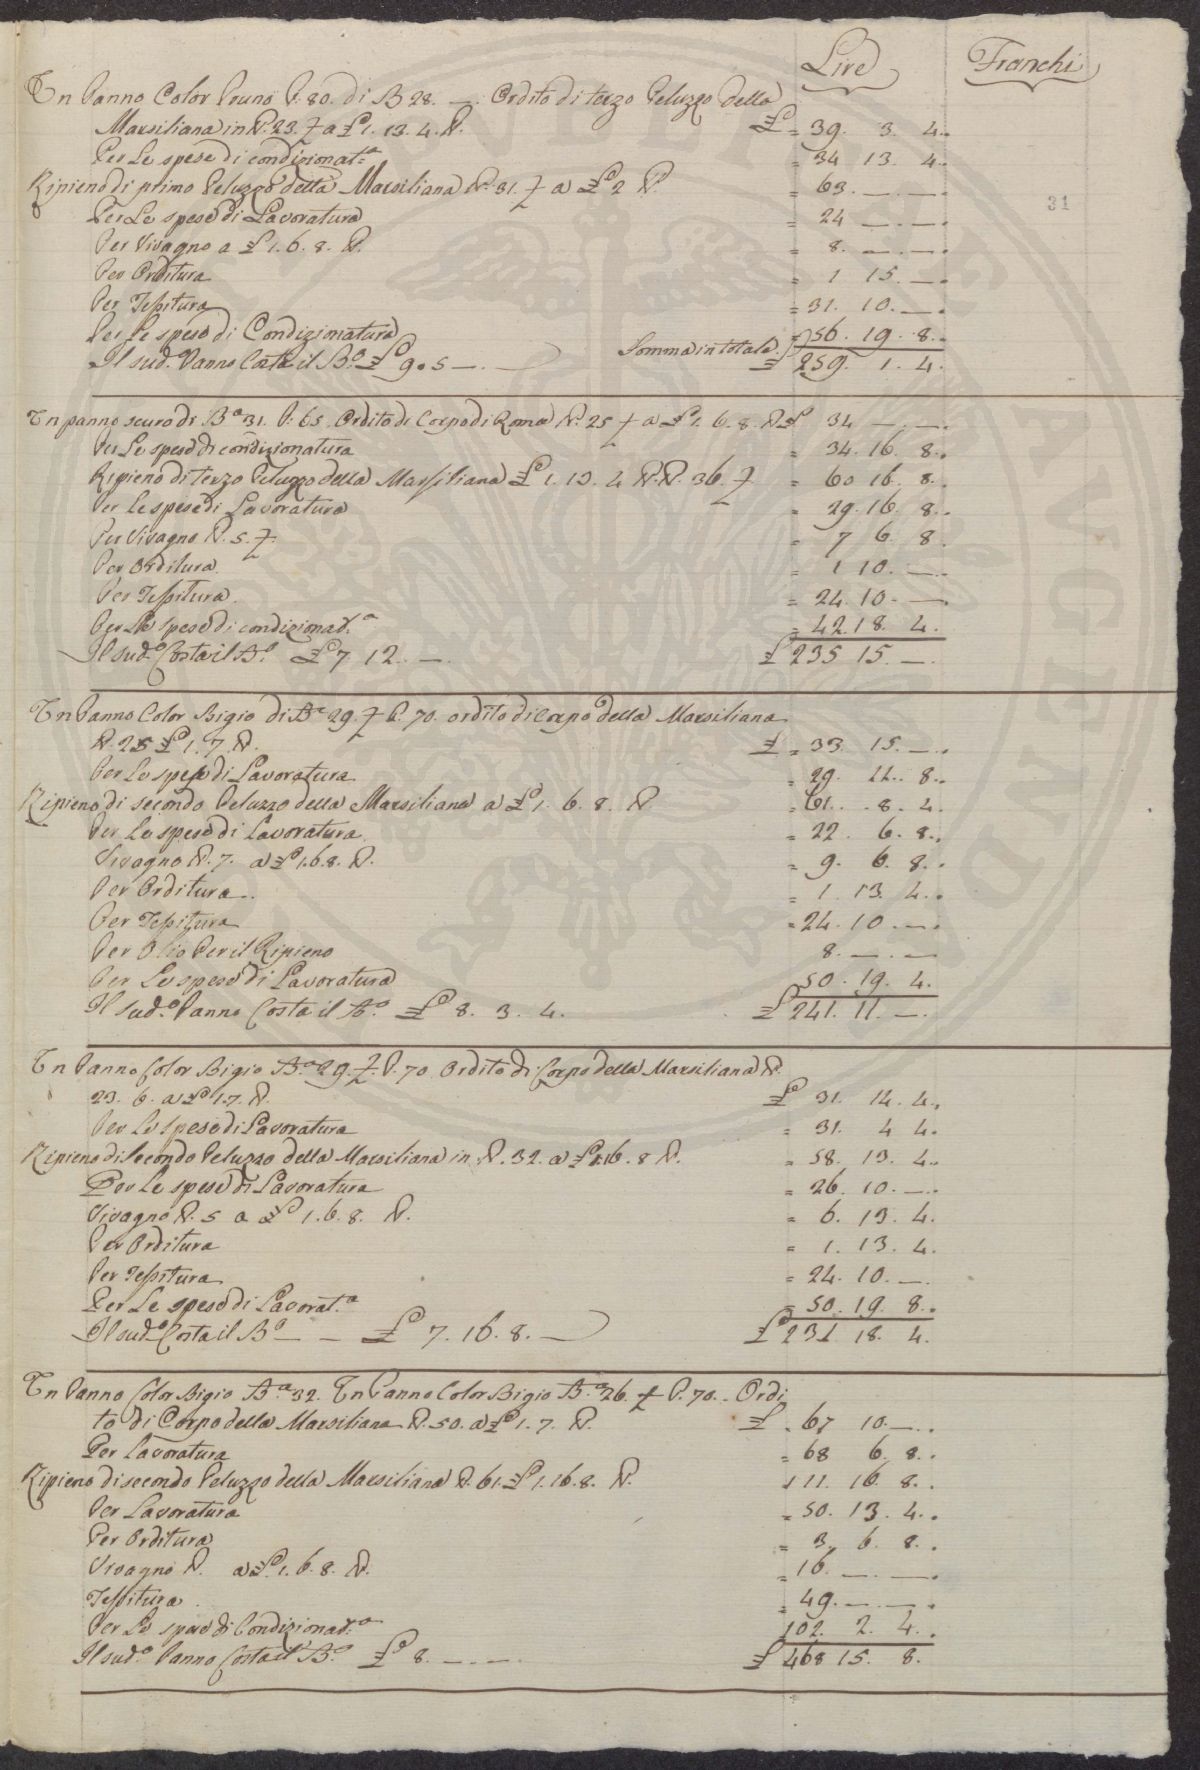 Lire Franchi
Un Panno Color Pruno P. 80. di B 28. —. Ordito di terzo Peluzzo della
Marsiliana in P. 23. ½ a £ 1. 13. 4. P. £ = 39. 3. 4.
Per Le spese di condizionat.ª = 34 13. 4.
Ripieno di primo Peluzzo della Marsiliana P. 31. ½ a £ 2 P. = 63. — . —.
Per Le spese di Lavoratura = 24 — . —.
Per Vivagno a £ 1. 6. 8. P. = 8. — . —.
Per Orditura = 1 15. —.
Per Tessitura = 31. 10. —.
Per Le spese di Condizionatura = 56. 19. 8.
Il sud.º Panno Costa il B.º £ 9. 5 —. Somma in totale £ 259. 1. 4.
31
Un panno scuro di B.ª 31. P. 65. Ordito di Corpo di Roma P. 25 ½ a £ 1. 6. 8. P. £ 34 — . —.
Per Le spese di condizionatura = 34. 16. 8.
Ripieno di terzo Peluzzo della Marsiliana £ 1. 13. 4 P. P. 36. ½ = 60 16. 8.
Per le spese di Lavoratura = 29. 16. 8.
Per Vivagno P. 5. ½ = 7 6. 8.
Per Orditura = 1 10. —.
Per Tessitura. = 24. 10. —
Per Le spese di condizionat.ª = 42. 18. 4.
Il sud.º Costa il B.º £ 7 12. —. £ 235 15. —.
Un Panno Color Bigio di B.ª 29. ½ P. 70. ordito di Corpo della Marsiliana
P. 25 £ 1. 7. P. £ = 33. 15. —.
Per Le spese di Lavoratura = 29. 11. 8.
Ripieno di secondo Peluzzo della Marsiliana a £ 1. 6. 8. P = 61. 8. 4.
Per Le spese di Lavoratura = 22. 6. 8.
Vivagno P. 7. a £ 1. 6. 8. P. = 9. 6. 8.
Per Orditura. = 1. 13. 4.
Per Tessitura = 24. 10. —.
Per Olio Per il Ripieno 8. — . —
Per Le spese di Lavoratura 50. 19. 4.
Il sud.º Panno Costa il B.º £ 8. 3. 4. £ 241. 11. —.
Un Panno Color Bigio B.ª 29 ½ P. 70 Ordito di Corpo della Marsiliana P.
23. 6. a £ 1. 7. P. £ 31. 14. 4.
Per Le spese di Lavoratura = 31. 4 4.
Ripieno di Secondo Peluzzo della Marsiliana in P. 32. a £ 1. 16. 8 P. = 58. 13. 4.
Per Le spese di Lavoratura = 26. 10. —.
Vivagno P. 5 a £ 1. 6. 8. P. = 6. 13. 4.
Per Orditura = 1. 13. 4.
Per Tessitura = 24. 10. —.
Per Le spese di Lavorat.ª = 50. 19. 8.
Il sud.º Costa il B.º — — £ 7. 16. 8. — £ 231. 18. 4.
Un Panno Color Bigio B.ª 32. Un Panno Color Bigio B.ª 26. ½ P. 70. Ordi
to di Corpo della Marsiliana P. 50. a £ 1. 7. P. £ . 67 10. — .
Per Lavoratura = 68 6. 8.
Ripieno di secondo Peluzzo della Marsiliana P. 61. £ 1. 16. 8. P. 111. 16. 8.
Per Lavoratura = 50. 13. 4.
Per Orditura = 3. 6. 8.
Vivagno P. a £ 1. 6. 8. P. = 16. — . —.
Tessitura. = 49. — . —.
Per Le spese di Condizionat.ª 102. 2. 4.
Il sud.º Panno Costa il B.º £ 8. — . —. £ 468 15. 8.